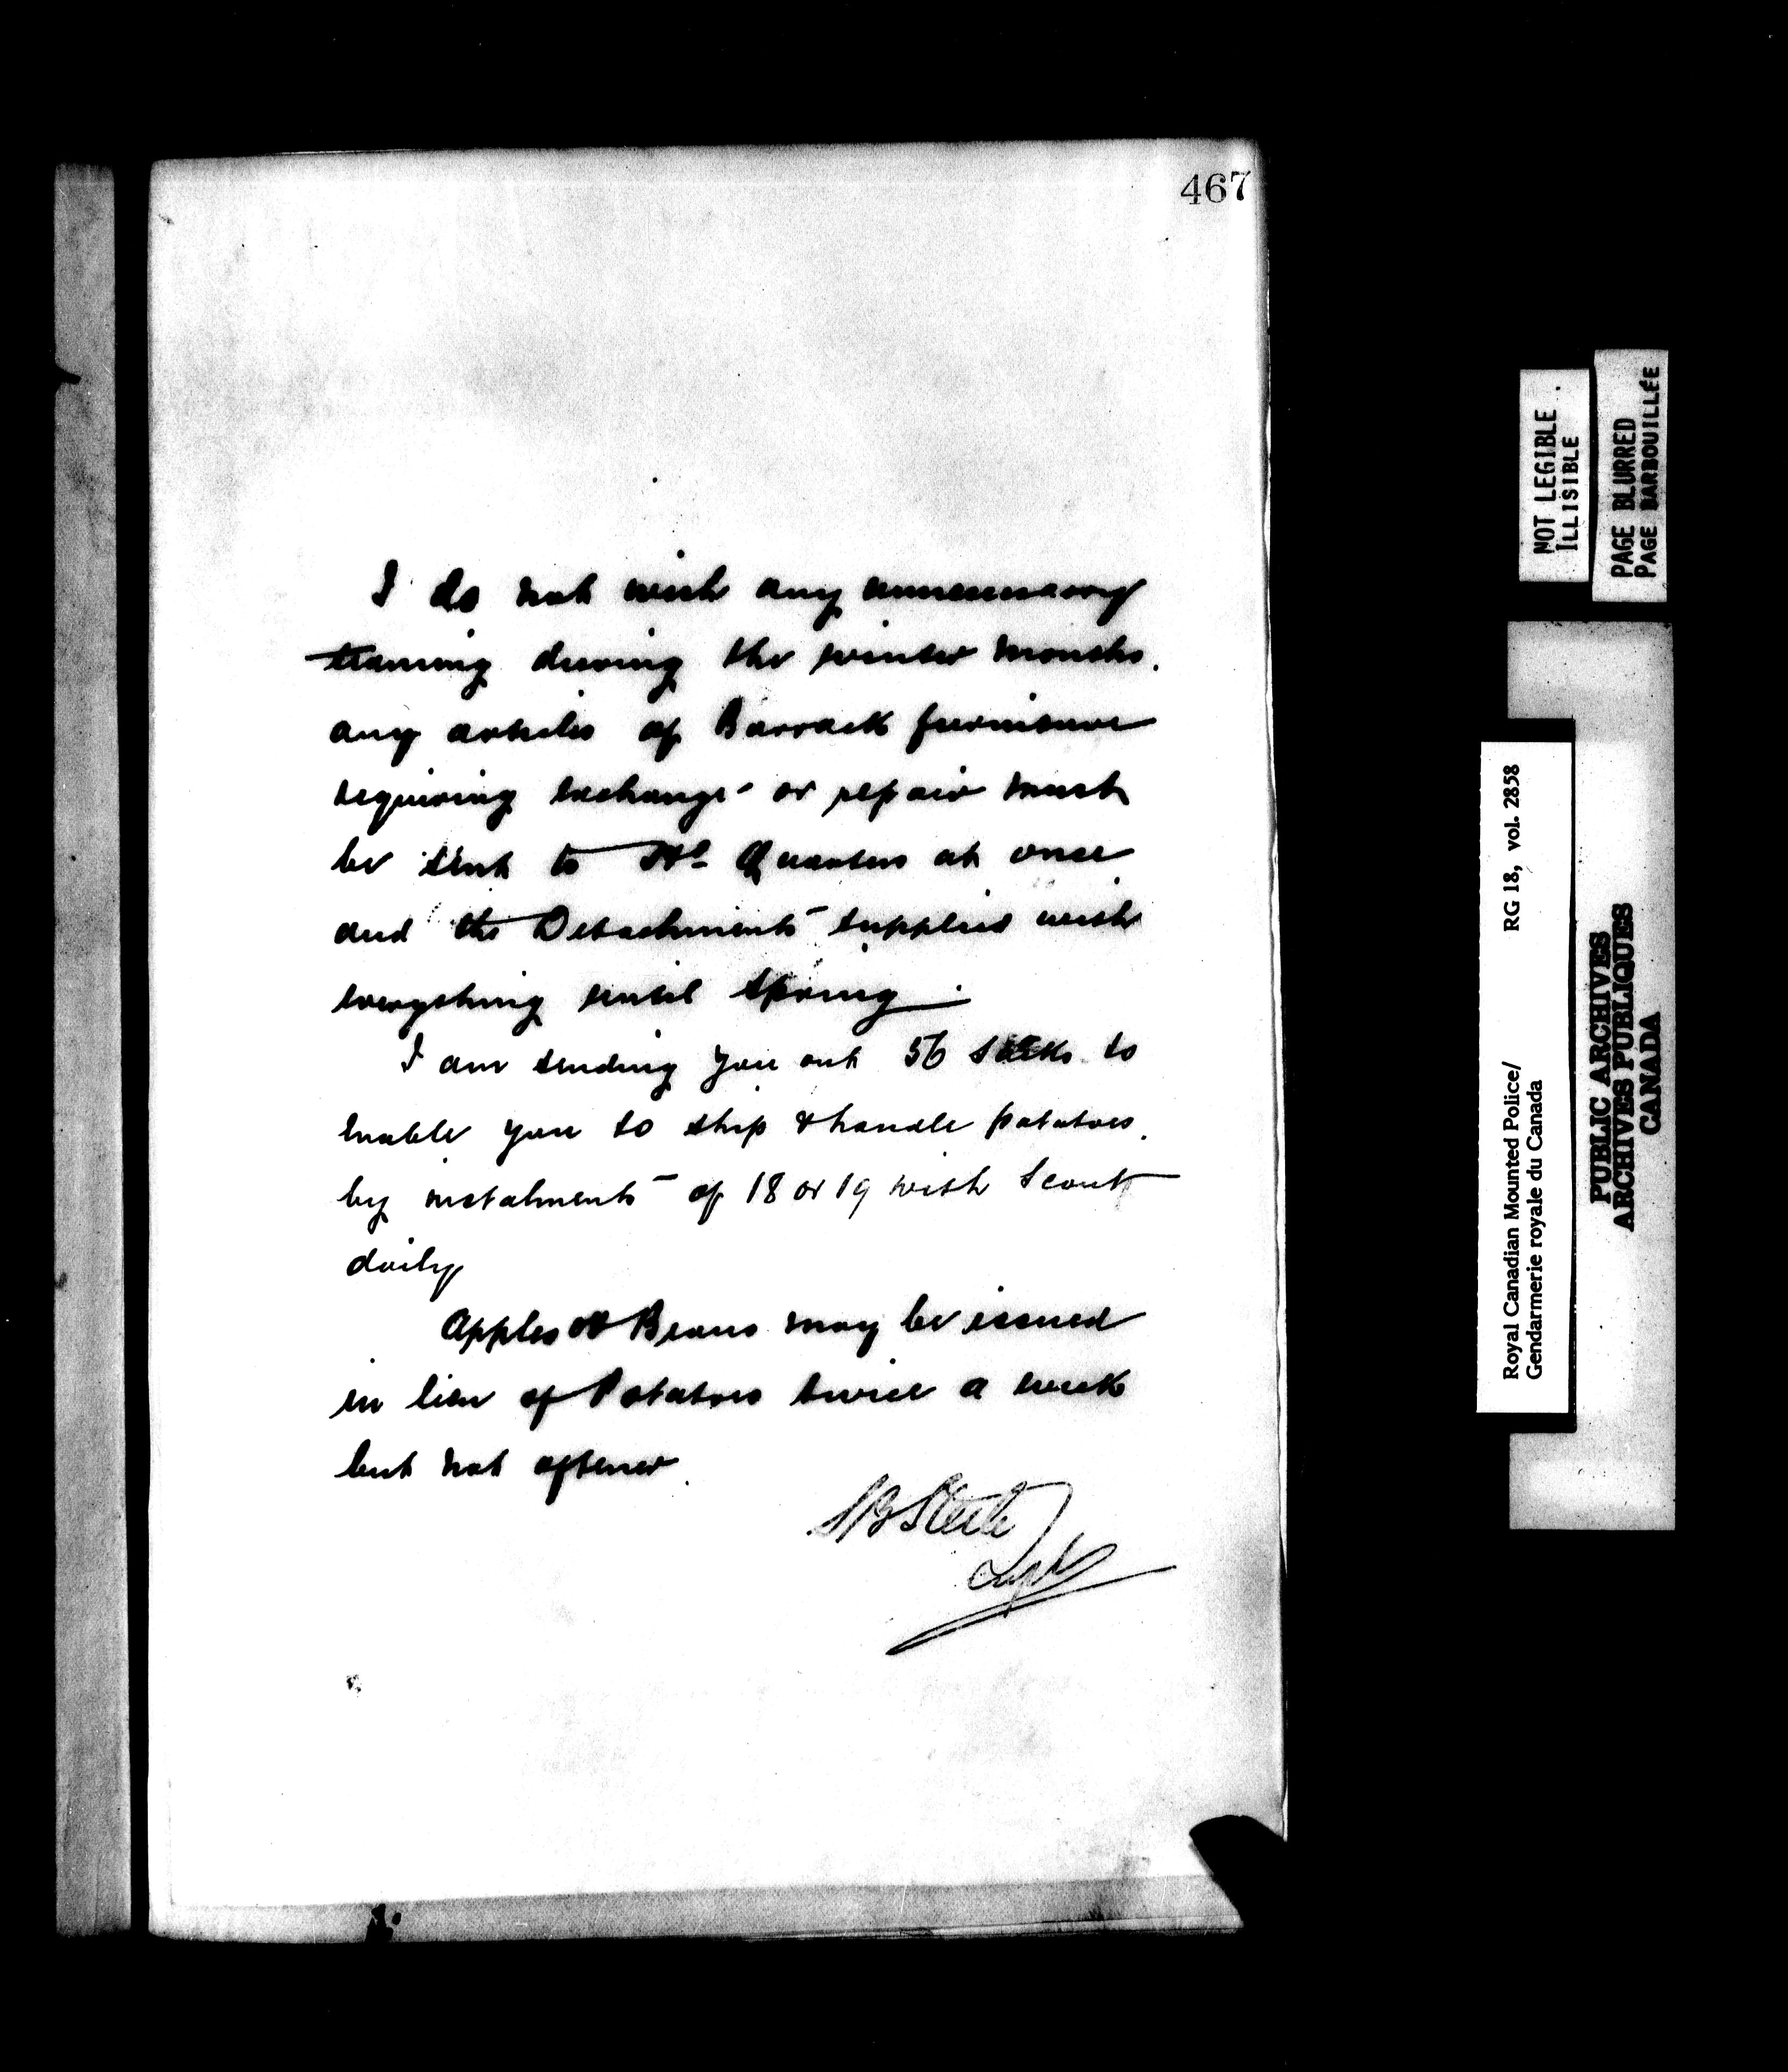 467
I do not wish any unnecessary
teaming during the winter months.
any articles of Barrack furniture
requiring exchange or repair must
be sent to Hd Quarters at once
and the Detachment supplied with
everything until spring.
I am sending you out 56 sacks to
enable you to ship & handle potatoes.
by instalments of 18 or 19 with Scout
daily
Apples & Beans may be issued
in lieu of Potatoes twice a week
but not oftener.
SB Steele
Supt
NOT LEGIBLE
ILLISIBLE
PAGE BLURRED
PAGE BARBOUILLÉE
Royal Canadian Mounted Police/ RG 18, vol. 2858
Gendarmerie royale du Canada
PUBLIC ARCHIVES
ARCHIVES PUBLIQUES
CANADA